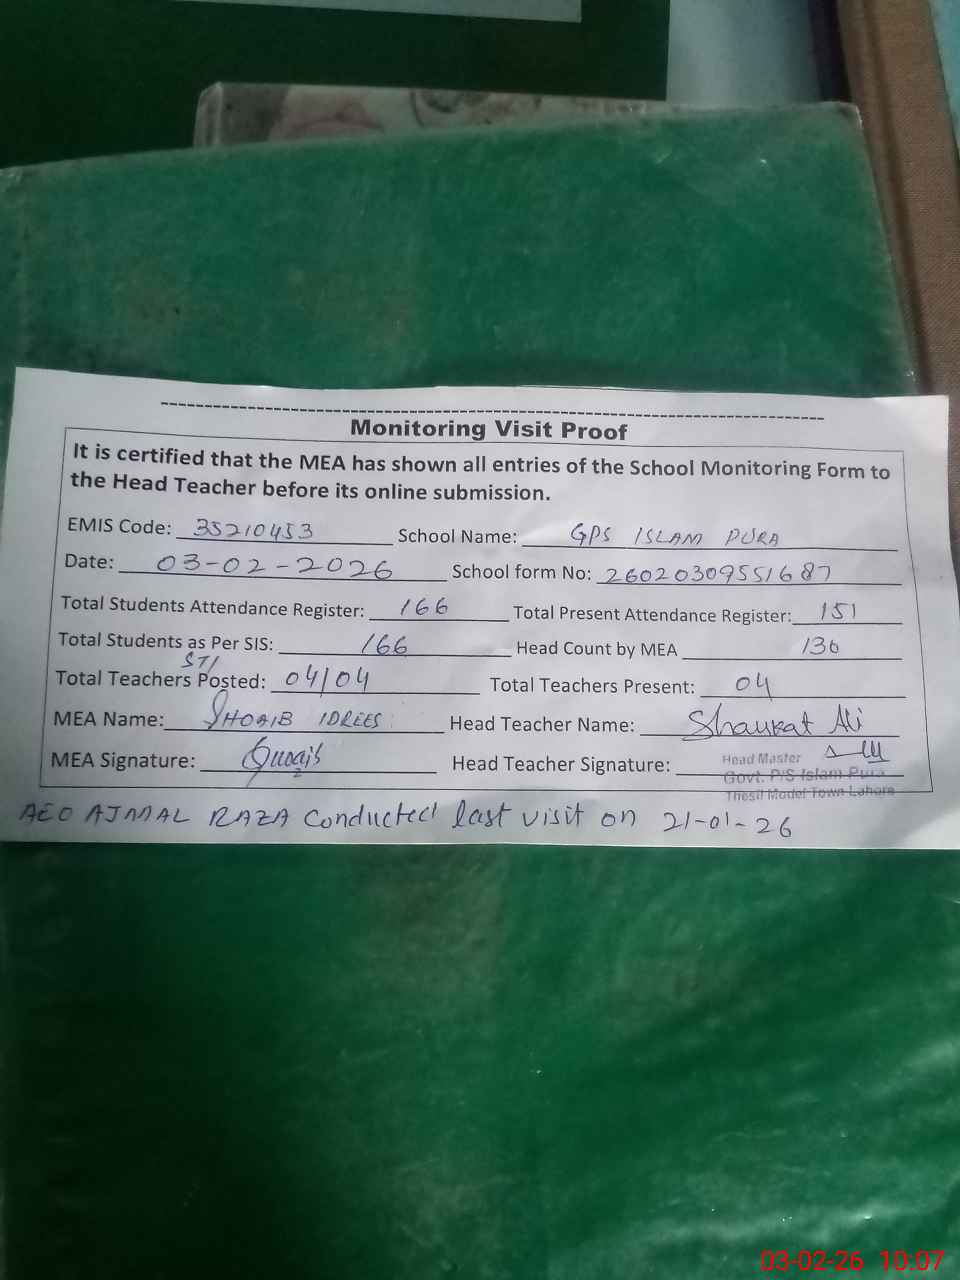 Monitoring Visit Proof
It is certified that the MEA has shown all entries of the School Monitoring Form to
the Head Teacher before its online submission.
EMIS Code: 35210453 School Name: GPS ISLAM PURA
Date: 03-02-2026 School form No: 26020309551687
Total Students Attendance Register: 166 Total Present Attendance Register: 151
Total Students as Per SIS: 166 Head Count by MEA 130
STI
Total Teachers Posted: 04/04 Total Teachers Present: 04
MEA Name: SHOAIB IDREES Head Teacher Name: Shaukat Ali
MEA Signature: Shoaib Head Teacher Signature:
Head Master
Govt. P/S Islam Pura
Thesil Model Town Lahore
AEO AJMAL RAZA Conducted last visit on 21-01-26
03-02-26 10:07